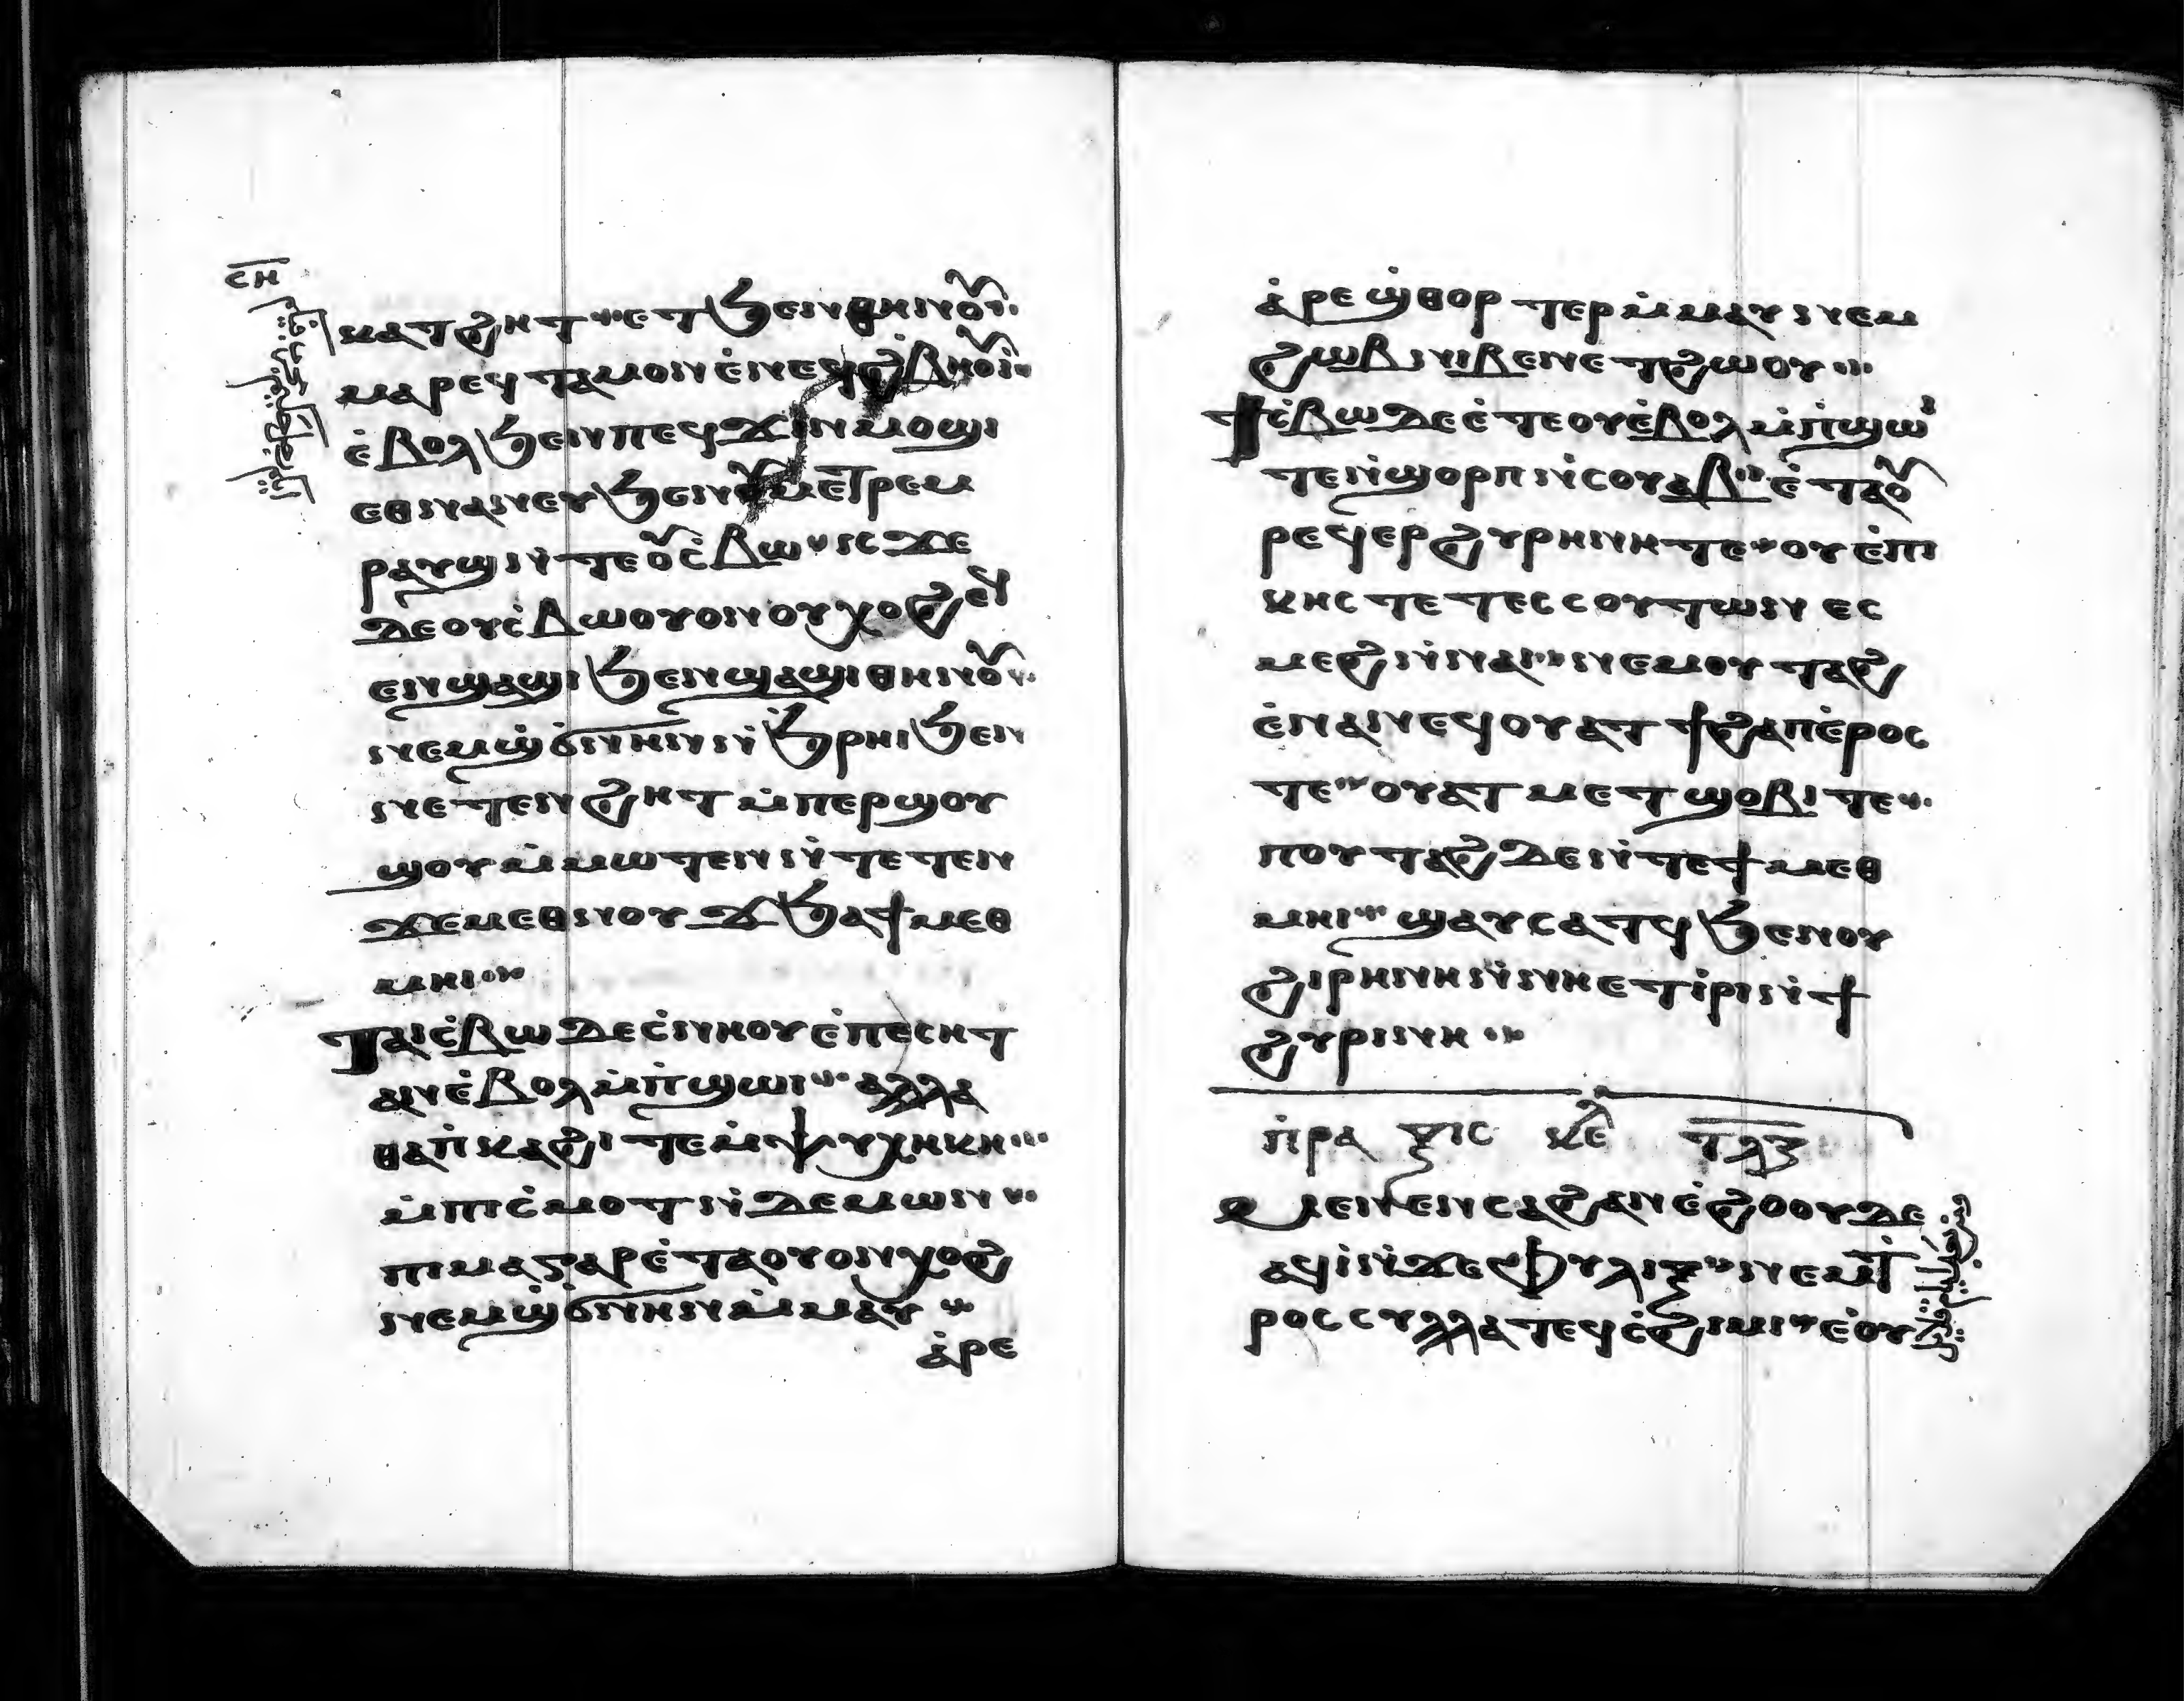 ⲥⲏ
ⲕⲁⲧϩⲏⲧ ⲉⲧϧⲉⲛⲑⲏⲛⲟⲩ
ⲙⲁⲣⲉϥⲧⲁⲙⲟⲛ ⲉ̀ⲛⲉϥϩ̀ⲃⲏⲟⲩⲓ̀
ⲉ̀ⲃⲟⲗϧⲉⲛⲡⲉϥϫⲓⲛⲙⲟϣⲓ
ⲉⲑⲛⲁⲛⲉⲩϧⲉⲛⲟⲩⲙⲉⲧⲣⲉⲙ
ⲣⲁⲩϣ ⲛ̀ⲧⲉⲟⲩⲥ̀ⲃⲱ ⲓⲥϫⲉ
ⲇⲉⲟⲩⲥ̀ⲃⲱⲟⲩⲟⲛⲟⲩⲭⲟϩ ⲉϥ
ⲉⲛϣⲁϣⲓϧⲉⲛϣⲁϣⲓⲑⲏⲛⲟⲩ
ⲛⲉⲙϣ̀ϭⲛⲏⲛ ⲛ̀ϧⲣⲏⲓϧⲉⲛ
ⲛⲉⲧⲉⲛϩⲏⲧ ⲙ̀ⲡⲉⲣϣⲟⲩ
ϣⲟⲩ ⲙ̀ⲙⲱⲧⲉⲛ ⲛ̀ⲧⲉⲧⲉⲛ
ϫⲉⲙⲉⲑⲛⲟⲩϫ ϧⲁϯⲙⲉⲑ
ⲙⲏⲓ
ⲧⲁⲓⲥ̀ⲃⲱⲇⲉⲥ̀ⲛⲏⲟⲩ ⲉ̀ⲡⲉⲥⲏⲧ
ⲁⲛⲉ̀ⲃⲟⲗⲙ̀ⲡ̀ϣⲱⲓ ⲁⲗⲗⲁ
ⲑⲁⲡ̀ⲕⲁϩⲓⲧⲉ ⲙ̀ⲯⲩⲭⲏⲕⲏ
ⲙ̀ⲡⲓⲥ̀ⲙⲟⲧ ⲛ̀ⲇⲉⲙⲱⲛ
ⲡⲓⲙⲁⲅⲁⲣⲉ̀ⲧⲁⲟⲩⲟⲛⲭⲟϩ
ⲛⲉⲙϣ̀ϭⲛⲏⲛ ⲙ̀ⲙⲁⲩ
ⲁ̀ⲣⲉ
ⲁ̀ⲣⲉϣ̀ⲑⲟⲣⲧⲉⲣ ⲙ̀ⲙⲁⲩ ⲛⲉⲙ
ϩⲱⲃ ⲛⲓⲃⲉⲛ ⲉⲧϩⲱⲟⲩ
ϯⲥ̀ⲃⲱⲇⲉ ⲉ̀ⲧⲉⲟⲩⲉ̀ⲃⲟⲗⲙ̀ⲡ̀ϣⲱⲓ
ⲧⲉ ⲛ̀ϣⲟⲣⲡ ⲛ̀ⲥⲟⲩⲁⲃ ⲉ̀ⲧⲁⲟⲩ
ⲣⲉϥⲉⲣϩⲩⲣⲏⲛⲏⲧⲉ ⲟⲩⲉ̀ⲡⲓ
ⲕⲏⲥⲧⲉ ⲧⲉⲥⲥⲟⲩⲧⲱⲛ ⲉⲥ
ⲙⲉϩ ⲛ̀ⲛⲁⲓ ⲛⲉⲙⲟⲩⲧⲁϩ
ⲉ̀ⲛⲁⲛⲉϥ ⲟⲩⲁⲧϯϩⲁⲡ ⲉ̀ⲣⲟⲥ
ⲧⲉ ⲟⲩⲁⲧⲙⲉⲧϣⲟⲃⲓⲧⲉ
ⲡⲟⲩⲧⲁϩⲇⲉ ⲛ̀ⲧⲉϯⲙⲉⲑ
ⲙⲏⲓ ϣⲁⲩⲥⲁⲧϥ ϧⲉⲛⲟⲩ
ϩⲓⲣⲏⲛⲏ ⲛ̀ⲛⲏⲉⲧⲓ̀ⲣⲓ ⲛ̀ϯ
ϩⲩⲣⲓⲛⲏ
ⲡ̀ⲣⲁⲝⲓⲥ ⲕⲉ ⲧⲗⲍ
ⲙⲉⲛⲉⲛⲥⲁϩⲁⲛⲉ̀ϩⲟⲟⲩⲇⲉ
ⲁϥⲓ̀ ⲛ̀ϫⲉⲫⲩⲗⲓⲝ ⲛⲉⲙⲧ̀
ⲣⲟⲥⲥⲩⲗⲗⲁⲧⲉϥⲥ̀ϩⲓⲙⲓ ⲉ̀ⲟⲩ